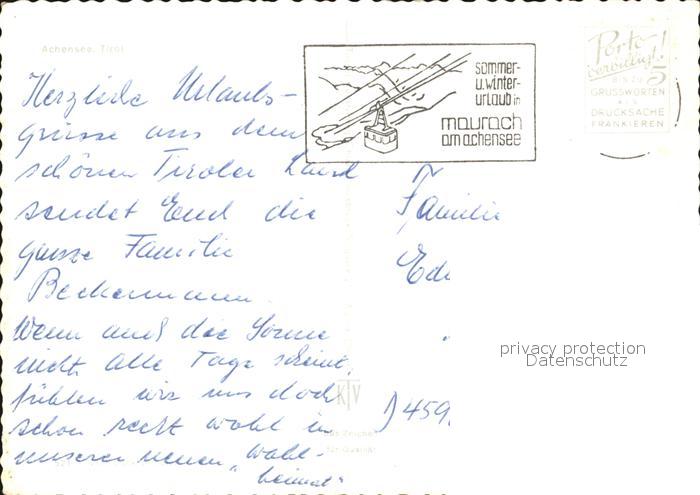 Achensee, Tirol
Herzliche Urlaubs-
grüsse aus dem
schönen Tiroler Land
sendet Euch die
ganze Familie
Beckermann.
Wenn auch die Sonne
nicht alle Tage scheint,
fühlen wir uns doch
schon recht wohl in
unserer neuen „Wahl-
heimat"
sommer-
u.winter-
urlaub in
maurach
am achensee
Porto
verbilligt!
BIS ZU
5
GRUSSWORTEN
ALS
DRUCKSACHE
FRANKIEREN
Familie
privacy protection
Datenschutz
D 459
KTV
das Zeichen
für Qualität